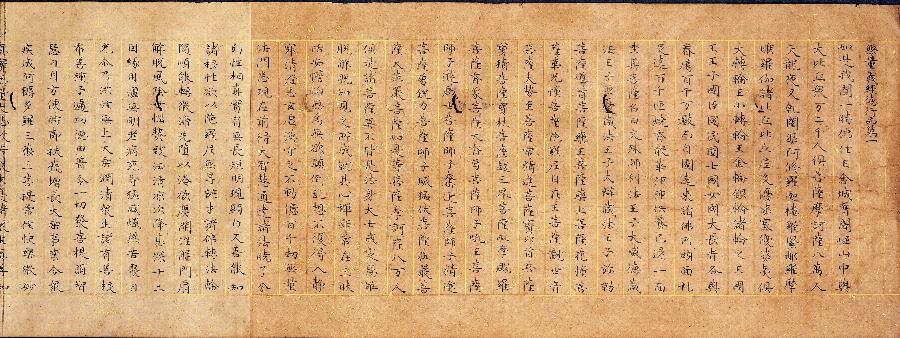 無量義經德行品第一
如是我聞一時佛住王舍城耆闍崛山中與
大比丘衆万二千人俱菩薩摩訶薩八萬人
天龍夜叉乾闥婆阿修羅迦樓羅緊那羅摩
睺羅伽諸比丘比丘尼及優婆塞優婆夷俱
大轉輪王小轉輪王金輪銀輪諸輪之王國
王王子國臣國民國士國女國大長者各與
眷屬百千万數而自圍遶來詣佛所頭面礼
足遶百千匝燒香散華種種供養已退一面
坐其菩薩名曰文殊師利法王子大威德藏
法王子無憂藏法王子大辯藏法王子弥勒
菩薩導首菩薩藥王菩薩藥上菩薩花幢菩
薩華光幢菩薩陀羅尼自在王菩薩觀世音
菩薩大勢至菩薩常精進菩薩寶印首菩薩
寶積菩薩寶杖菩薩越三界菩薩毗摩颰羅
菩薩香象菩薩大香象菩薩師子吼王菩薩
師子遊戲世菩薩師子奮迅菩薩師子精進
菩薩勇銳力菩薩師子威猛伏菩薩莊嚴菩
薩大莊嚴菩薩如是等菩薩摩訶薩八万人
俱是諸菩薩莫不皆是法身大士戒定慧解
脫解脫知見之所成就其心禪寂常在三昧
恬安惔怕無爲無欲顛倒亂想不復得入靜
寂清澄志玄虛漠守之不動億百千劫無量
法門悉現在前得大智慧通達諸法曉了分
別性相真實有無長短明現顯白又善能知
諸根性欲以陀羅尼無导辯才請佛轉法輪
隨順能轉微渧先墮以淹欲塵開涅槃門扇
解脫風除世惱熱致法清涼次降甚深十二
因緣用灑無明老病死等猛盛熾然苦聚日
光尒乃洪注無上大乘潤漬衆生諸有善根
布善種子遍功德田普令一切發菩提萌智
慧日月方便時節扶疏增長大乘事業令衆
疾成阿耨多羅三藐三菩提常住快樂微妙